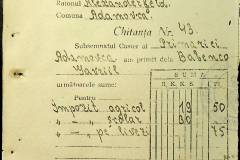 Raionul Alexanderfeld.
Comuna Adamovca.
Chitanța Nr. 43.
Subsemnatul Casier al Primăriei
Adamovca am primit dela Babenco
Gavriil
următoarele sume:
SUMA
Pentru
Impozit agricol 19 50
" — școlar 90
" — pe livezi 75